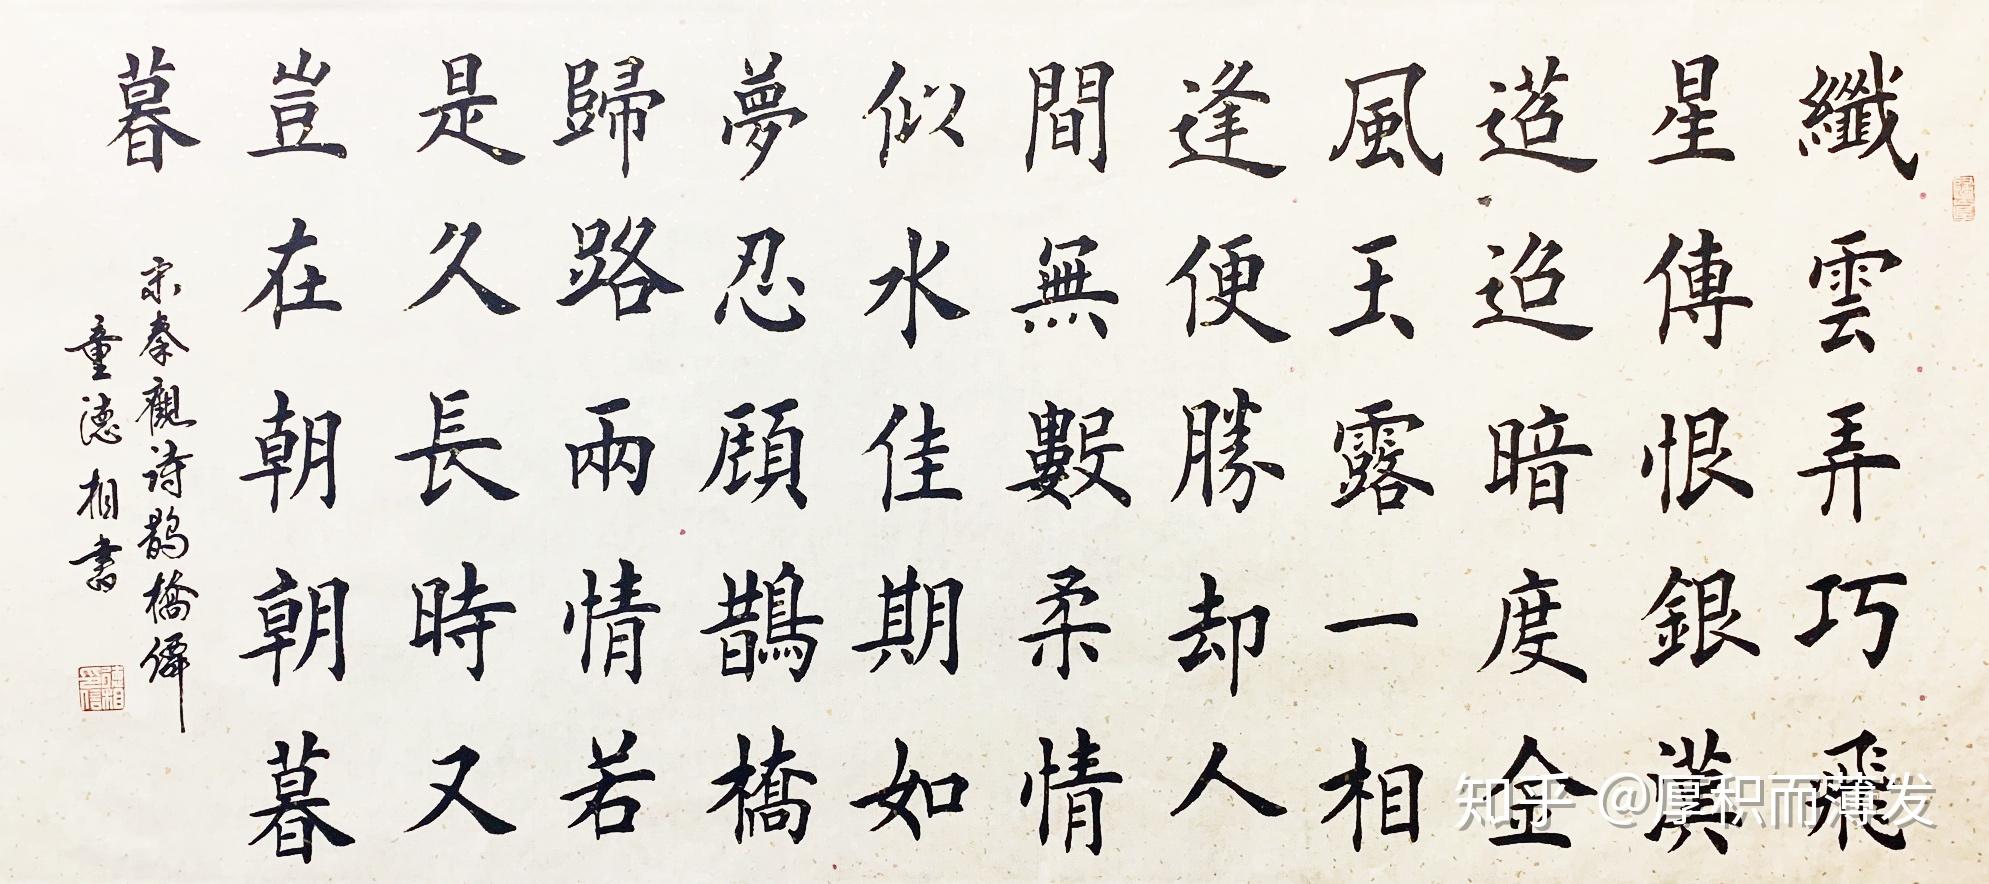 纖雲弄巧飛
星傳恨銀漢
迢迢暗度金
風玉露一相
逢便勝却人
間無數柔情
似水佳期如
夢忍顧鵲橋
歸路兩情若
是久長時又
豈在朝朝暮
暮
宋秦觀詩鵲橋僊
童德相書
知乎 @厚积而薄发